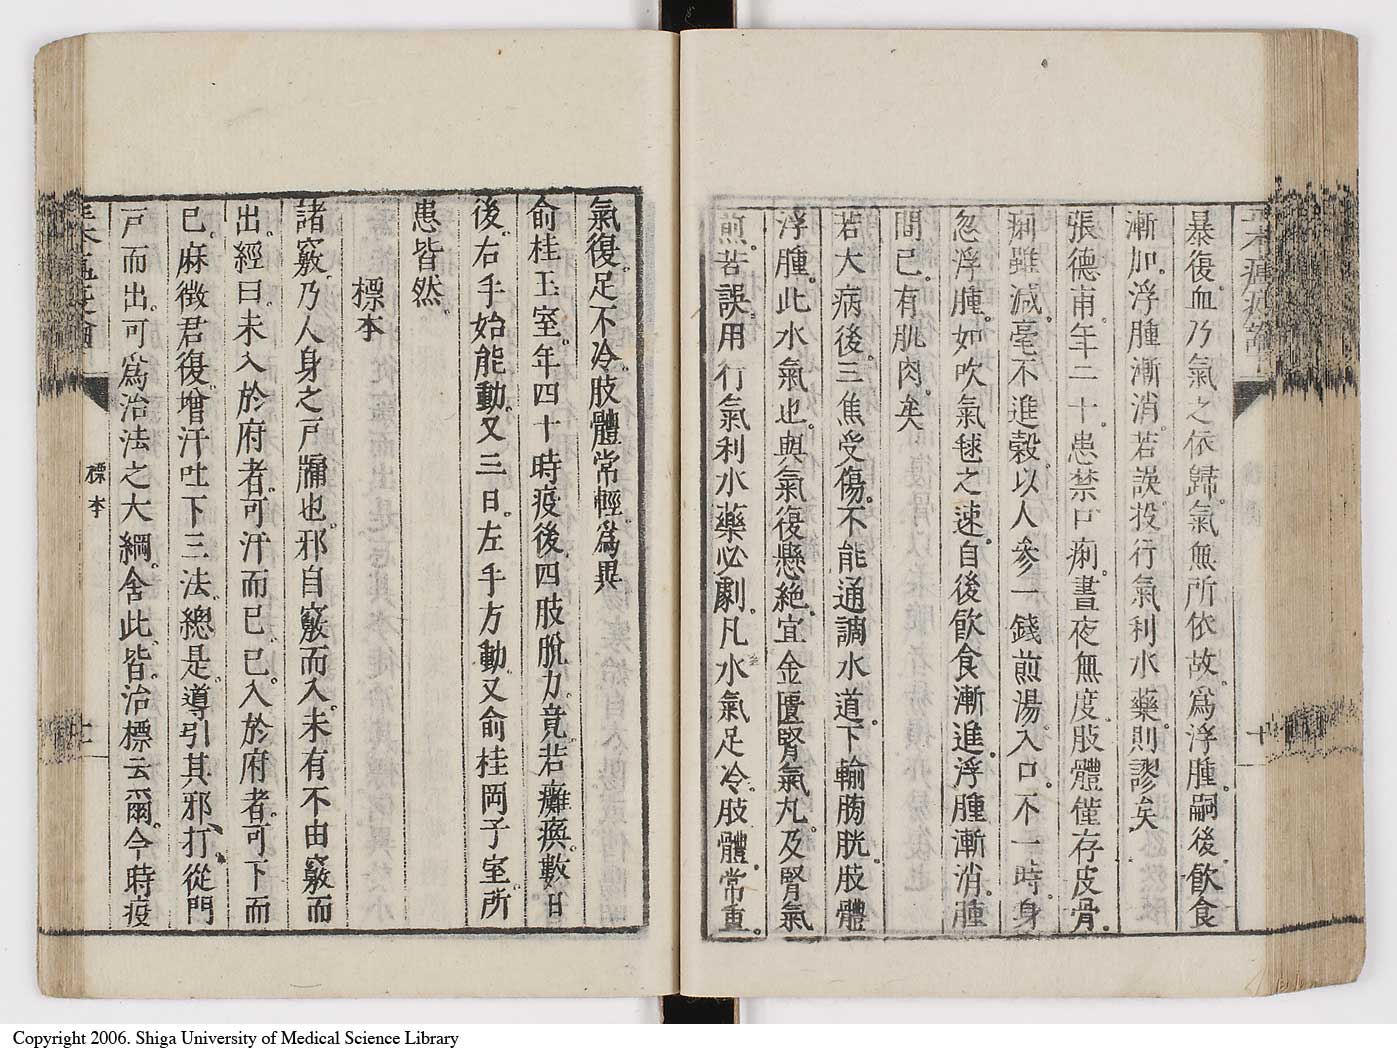 暴復血乃氣之依歸氣無所依故爲浮腫嗣後飲食
漸加浮腫漸消若誤投行氣利水藥則謬矣
張德甫年二十患禁口痢晝夜無度肢體僅存皮骨
痢雖減毫不進穀以人參一錢煎湯入口不一時身
忽浮腫如吹氣毬之速自後飲食漸進浮腫漸消腫
間已有肌肉矣
若大病後三焦受傷不能通調水道下輸膀胱肢體
浮腫此水氣也與氣復懸絶宜金匱腎氣丸及腎氣
煎若誤用行氣利水藥必劇凡水氣足冷肢體常重
氣復足不冷肢體常輕爲異
俞桂玉室年四十時疫後四肢脫力竟若癱瘓數日
後右手始能動又三日左手方動又俞桂岡子室所
患皆然
標本
諸竅乃人身之戸牖也邪自竅而入未有不由竅而
出經曰未入於府者可汗而已已入於府者可下而
已麻徴君復增汗吐下三法總是導引其邪打從門
戸而出可爲治法之大綱舍此皆治標云爾今時疫
標本
十
十一
Copyright 2006. Shiga University of Medical Science Library